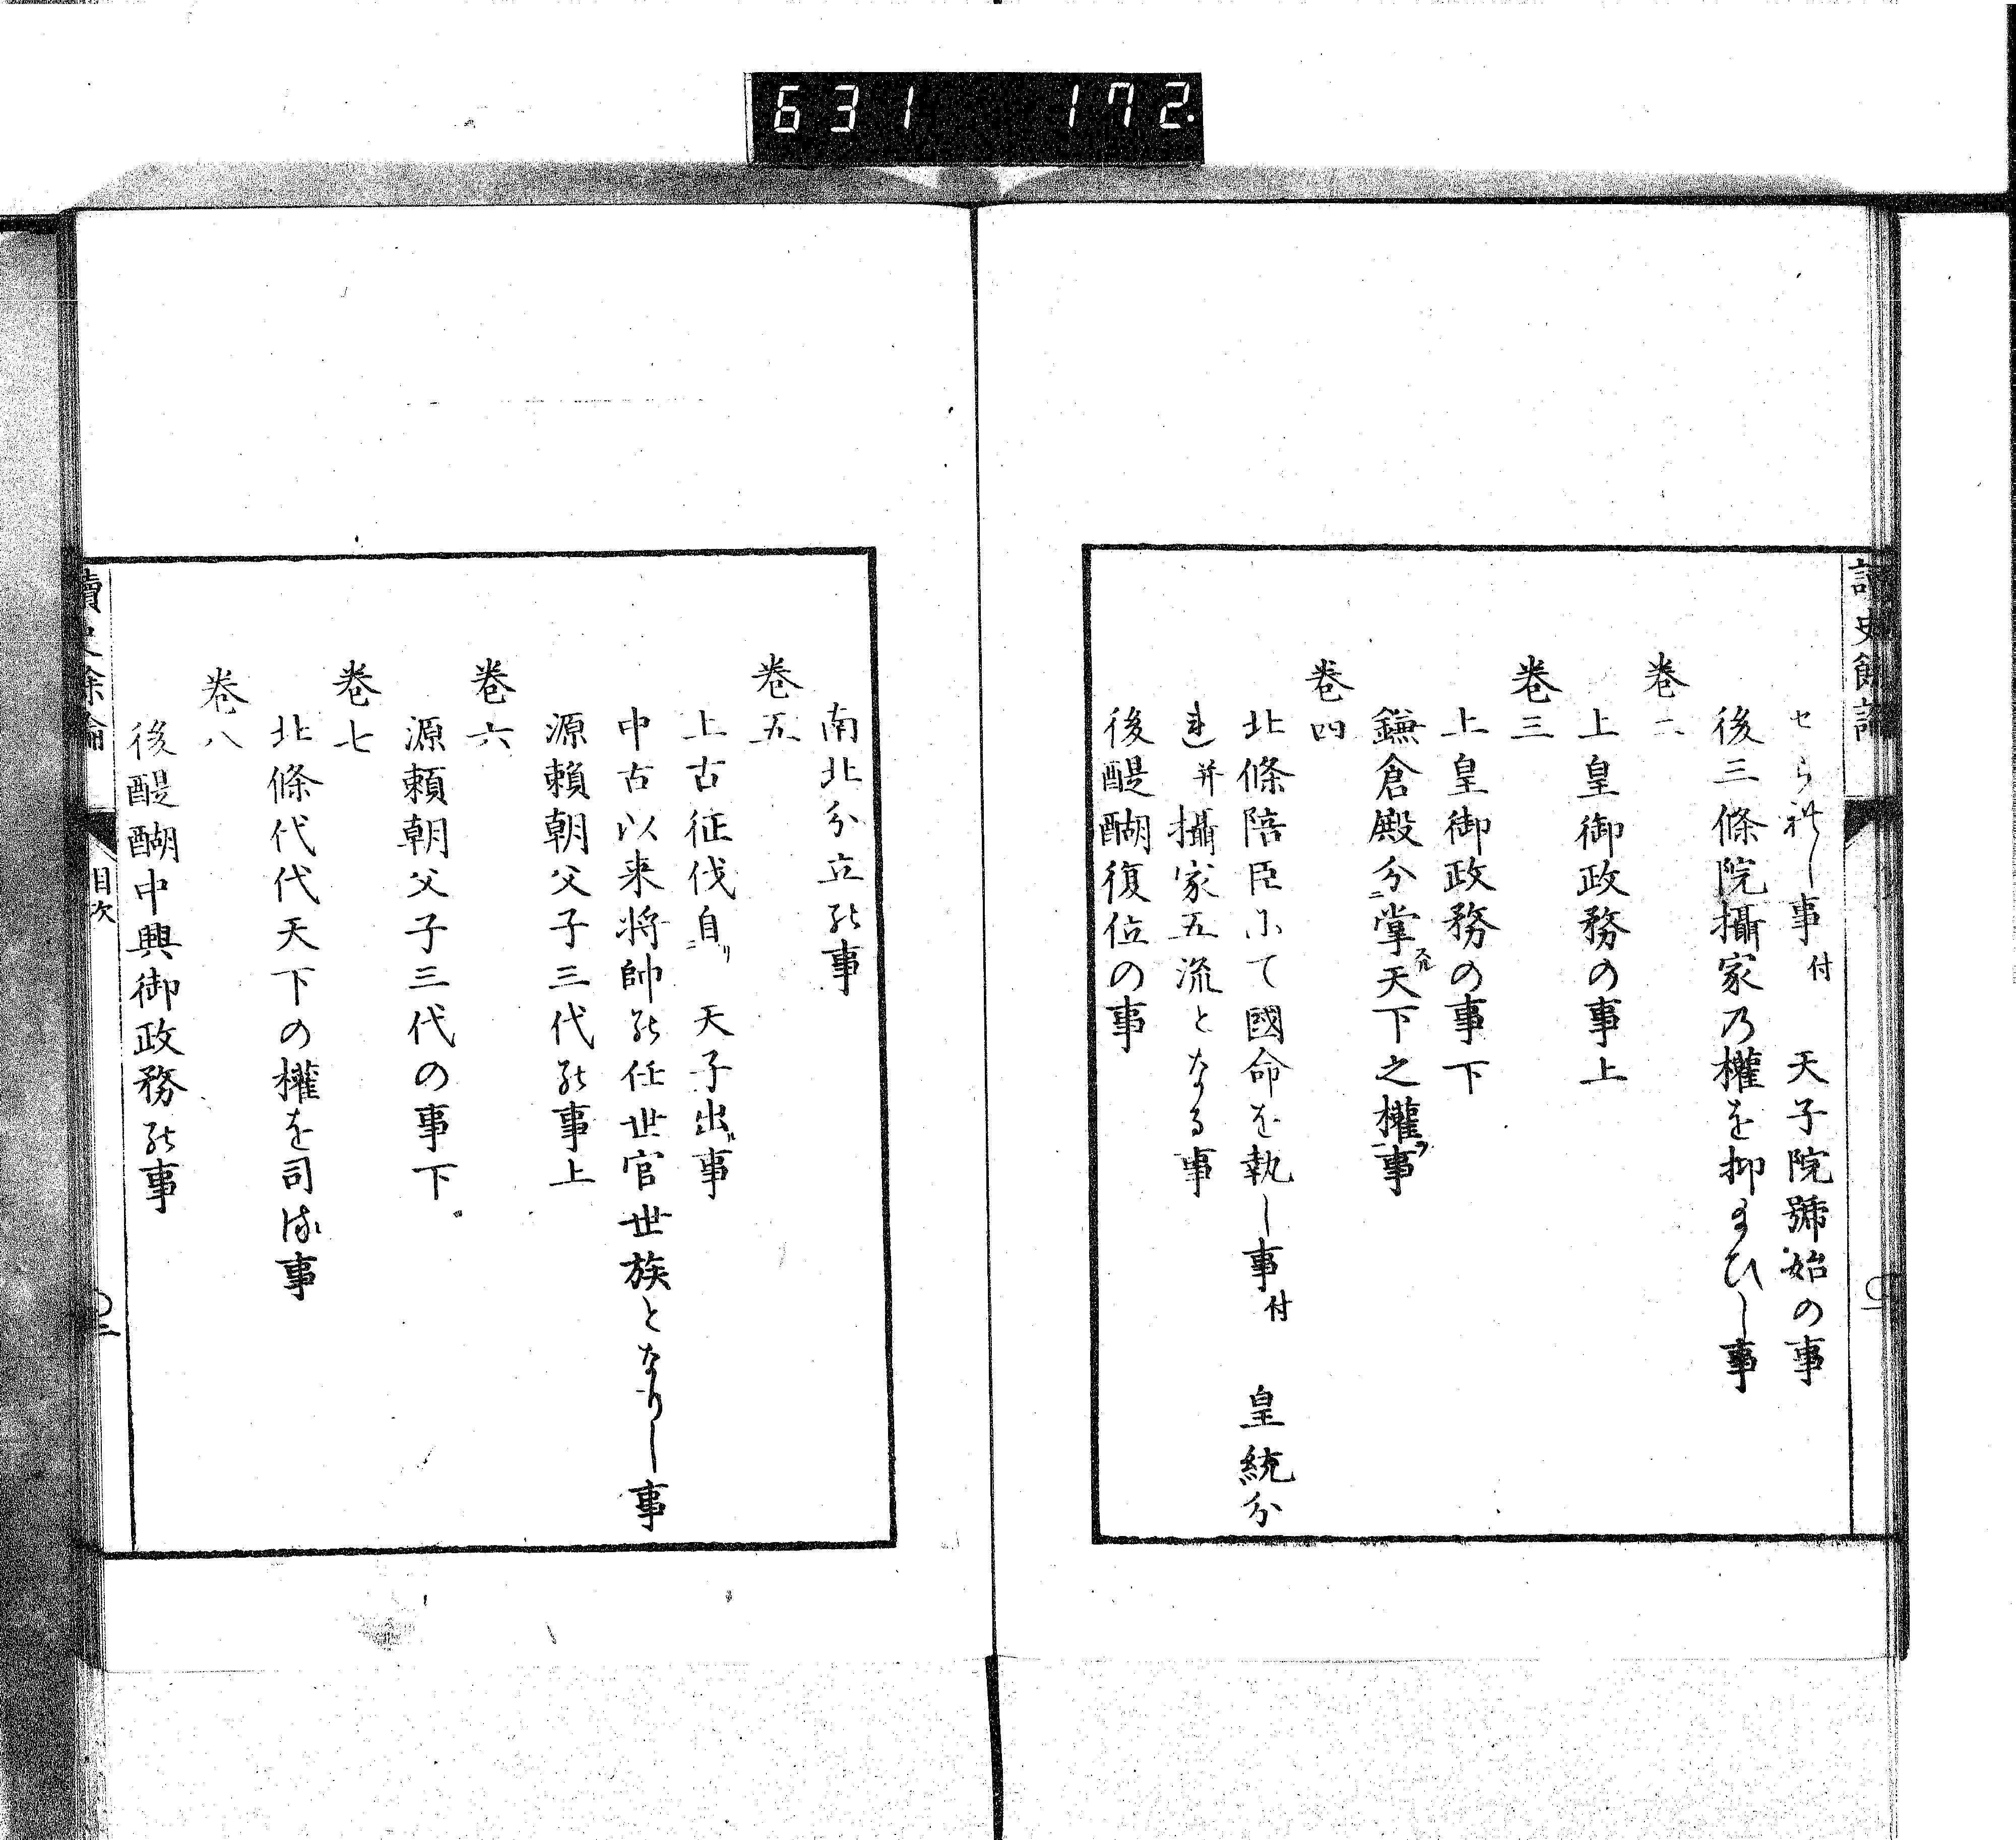 631 172.
せられし事付 天子院號始の事
後三條院攝家乃權を抑まひし事
卷二
上皇御政務の事上
卷三
上皇御政務の事下
鎌倉殿分ニ掌天下之權ヲ事
卷四
北條陪臣にて國命を執し事付 皇統分
れ并攝家五流となる事
後醍醐復位の事
南北分立の事
卷五
上古征伐自リニ 天子出ヅ事
中古以来将帥の任世官世族となりし事
源賴朝父子三代の事上
卷六
源賴朝父子三代の事下
卷七
北條代代天下の權を司る事
卷八
後醍醐中興御政務の事
讀史餘論
目次
二